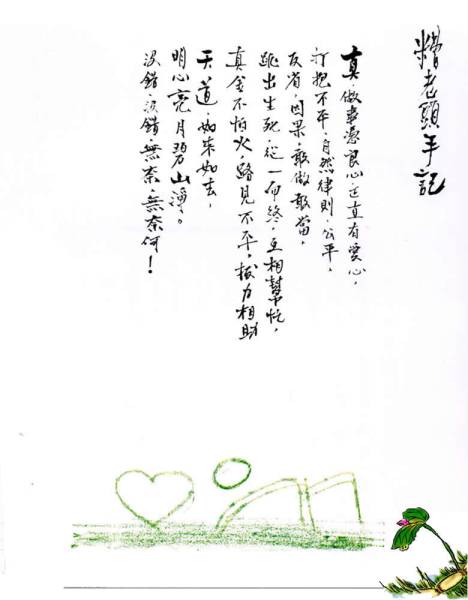 糟老頭手記
真，做事憑良心，正直有愛心，
打抱不平，自然律則，公平，
反省，因果，敢做敢當，
跳出生死，從一而終，互相幫忙，
真金不怕火，路見不平，拔刀相助
天道，如來如去，
明心亮月碧山淨。
沒錯沒錯，無奈，無奈何！